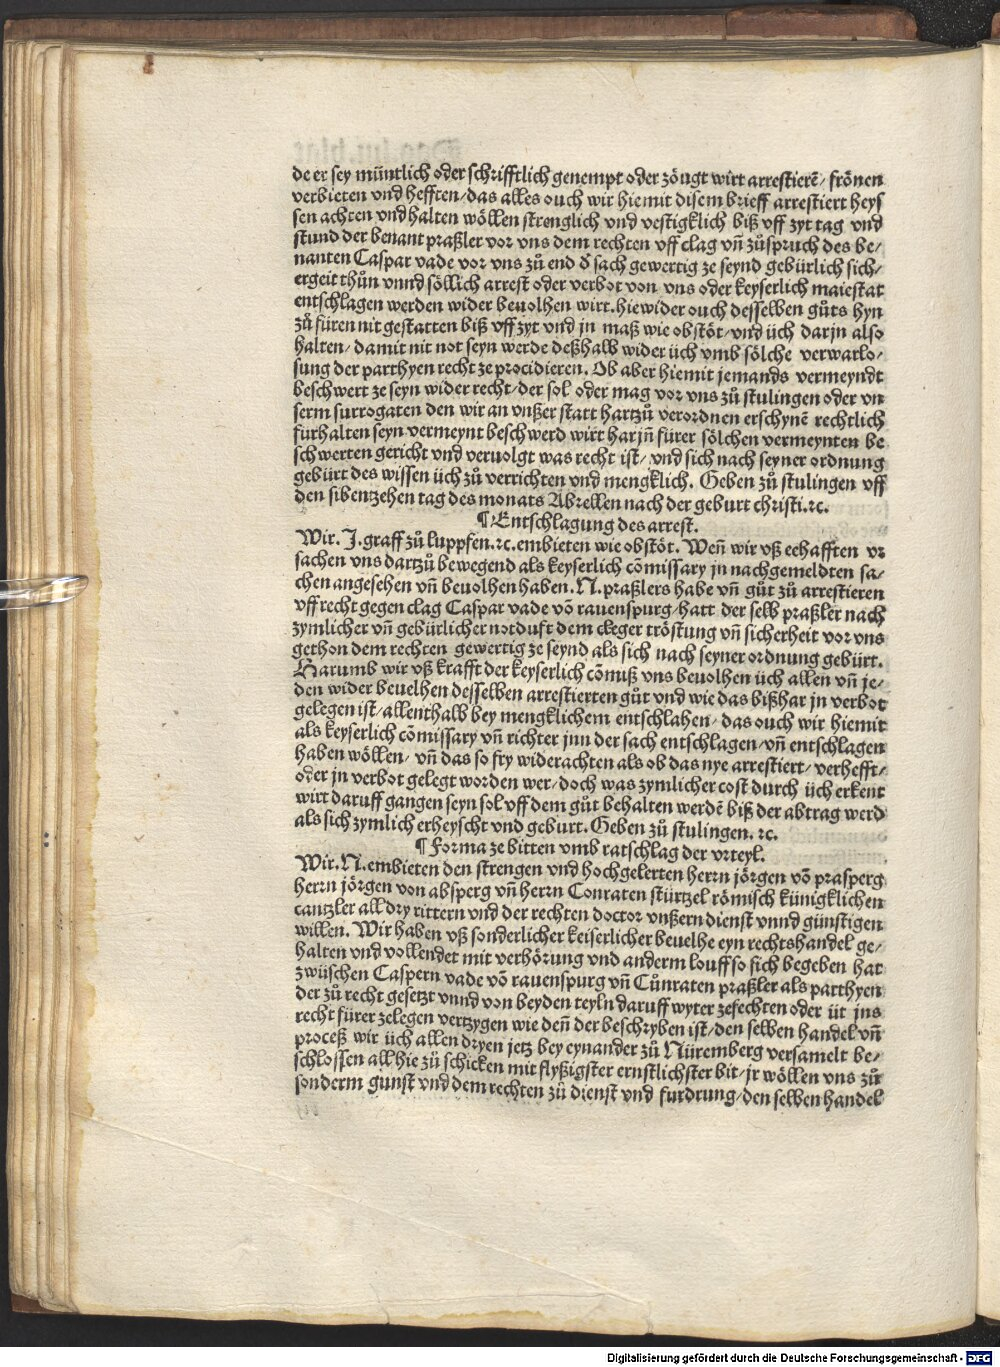 de er sey müntlich oder schrifftlich genempt oder zöugt wirt arrestierē/ frönen
verbieten vnd hefften/ das alles ouch wir hiemit disem brieff arrestiert heys
sen achten vnd halten wöllen strenglich vnd vestigklich biß vff zyt tag vnd
stund der benant praßler vor vns dem rechten vff clag vn̄ zůspruch des be/
nanten Caspar vade vor vns zů end d̕ sach gewertig ze seynd gebürlich sich/
ergeit thůn vnnd söllich arrest oder verbot von vns oder keyserlich maiestat
entschlagen werden wider beuolhen wirt. hiewider ouch desselben gůts hyn
zů füren nit gestatten biß vff zyt vnd jn maß wie obstöt/ vnd üch darjn also
halten/ damit nit not seyn werde deßhalb wider üch vmb sölche verwarlo/
sung der parthyen recht ze procidieren. Ob aber hiemit jemands vermeyndt
beschwert ze seyn wider recht/ der sol oder mag vor vns zů stulingen oder vn
serm surrogaten den wir an vnßer statt hartzů verordnen erschynē rechtlich
furhalten seyn vermeynt beschwerd wirt harjn̄ fürer sölchen vermeynten be
schwerten gericht vnd veruolgt was recht ist/ vnd sich nach seyner ordnung
gebürt des wissen üch zů verrichten vnd mengklich. Geben zů stulingen vff
den sibentzehen tag des monats Abrellen nach der geburt christi.ꝛc.
¶ Entschlagung des arrest.
Wir. J. graff zů luppfen.ꝛc. embieten wie obstöt. Wen̄ wir vß eehafften vr
sachen vns dartzů bewegend als keyserlich cōmissary jn nachgemeldten sa/
chen angesehen vn̄ beuolhen haben. N. praßlers habe vn̄ gůt zů arrestieren
vff recht gegen clag Caspar vade vō rauenspurg/ hatt der selb praßler nach
zymlicher vn̄ gebürlicher notduft dem cleger tröstung vn̄ sicherheit vor vns
gethon dem rechten gewertig ze seynd als sich nach seyner ordnung gebürt.
Harumb wir vß krafft der keyserlich cōmiß vns beuolhen üch allen vn̄ je/
den wider beuelhen desselben arrestierten gůt vnd wie das bißhar jn verbot
gelegen ist/ allenthalb bey mengklichem entschlahen/ das ouch wir hiemit
als keyserlich cōmissary vn̄ richter jnn der sach entschlagen/ vn̄ entschlagen
haben wöllen/ vn̄ das so fry widerachten als ob das nye arrestiert/ verhefft/
oder jn verbot gelegt worden wer/ doch was zymlicher cost durch üch erkent
wirt daruff gangen seyn sol vff dem gůt behalten werdē biß der abtrag werd
als sich zymlich erheyscht vnd geburt. Geben zů stulingen. ꝛc.
¶ Forma ze bitten vmb ratschlag der vrteyl.
Wir. N. embieten den strengen vnd hochgelerten herrn jörgen vō prasperg
herrn jörgen von absperg vn̄ herrn Conraten stürtzel römisch künigklichen
cantzler all dry rittern vnd der rechten doctor vnßern dienst vnnd günstigen
willen. Wir haben vß sonderlicher keiserlicher beuelhe eyn rechtshandel ge/
halten vnd vollendet mit verhörung vnd anderm louff so sich begeben hat
zwüschen Caspern vade vō rauenspurg vn̄ Cůnraten praßler als parthyen
der zů recht gesetzt vnnd von beyden teyln daruff wyter zefechten oder üt jns
recht fürer zelegen vertzygen wie den̄ der beschryben ist/ den selben handel vn̄
proceß wir üch allen dryen jetz bey eynander zů Nüremberg versamelt be/
schlossen all hie zů schicken mit flyßigster ernstlichster bit/ jr wöllen vns zůr
sonderm gunst vnd dem rechten zů dienst vnd furdrung/ den selben handel
Digitalisierung gefördert durch die Deutsche Forschungsgemeinschaft - DFG